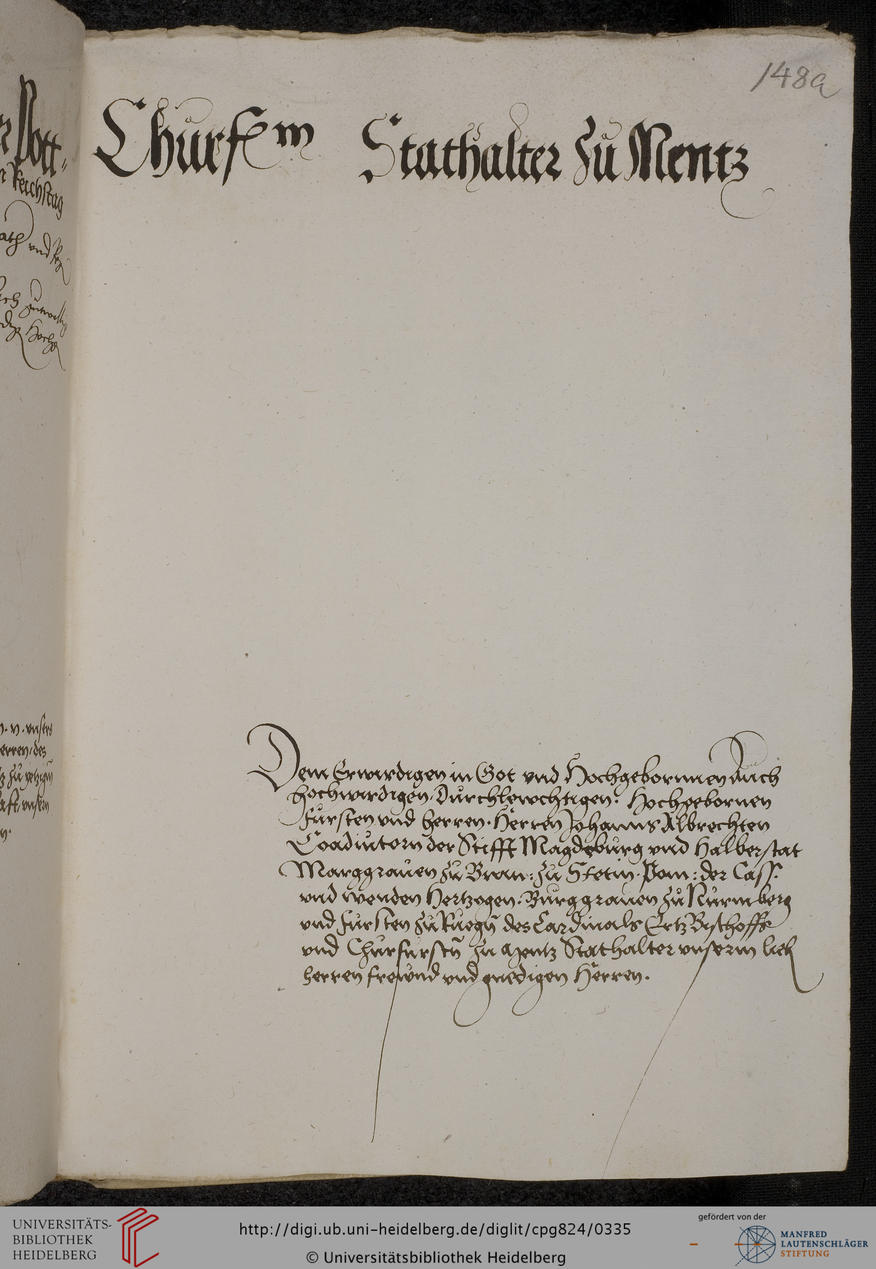 148a
Churf m Stathalter zu Mentz
Dem Erwirdigen in Got vnd Hochgebornnen Auch
hochwirdigen. Durchlewchtigen: Hochgebornen
Fursten vnd herren. Herren Johanns Albrechten
Coadiutorn der Stifft Magdeburg vnd Halberstat
Marggrauen zu Bran: zu Stetin. Pom: der Cass:
vnd wenden Hertzogen. Burggrauen zu Nurmberg
vnd fursten zu Ruegn des Cardinals Ertz Bischoffs
vnd Churfurstn zu Mentz Stathalter vnserm lieb
herren frewnd vnd gnedigen Herren.
Pott
Reichstag
vnd
vnsers
herren. des
UNIVERSITÄTS-
BIBLIOTHEK
HEIDELBERG
http://digi.ub.uni-heidelberg.de/diglit/cpg824/0335
© Universitätsbibliothek Heidelberg
gefördert von der
MANFRED
LAUTENSCHLÄGER
STIFTUNG